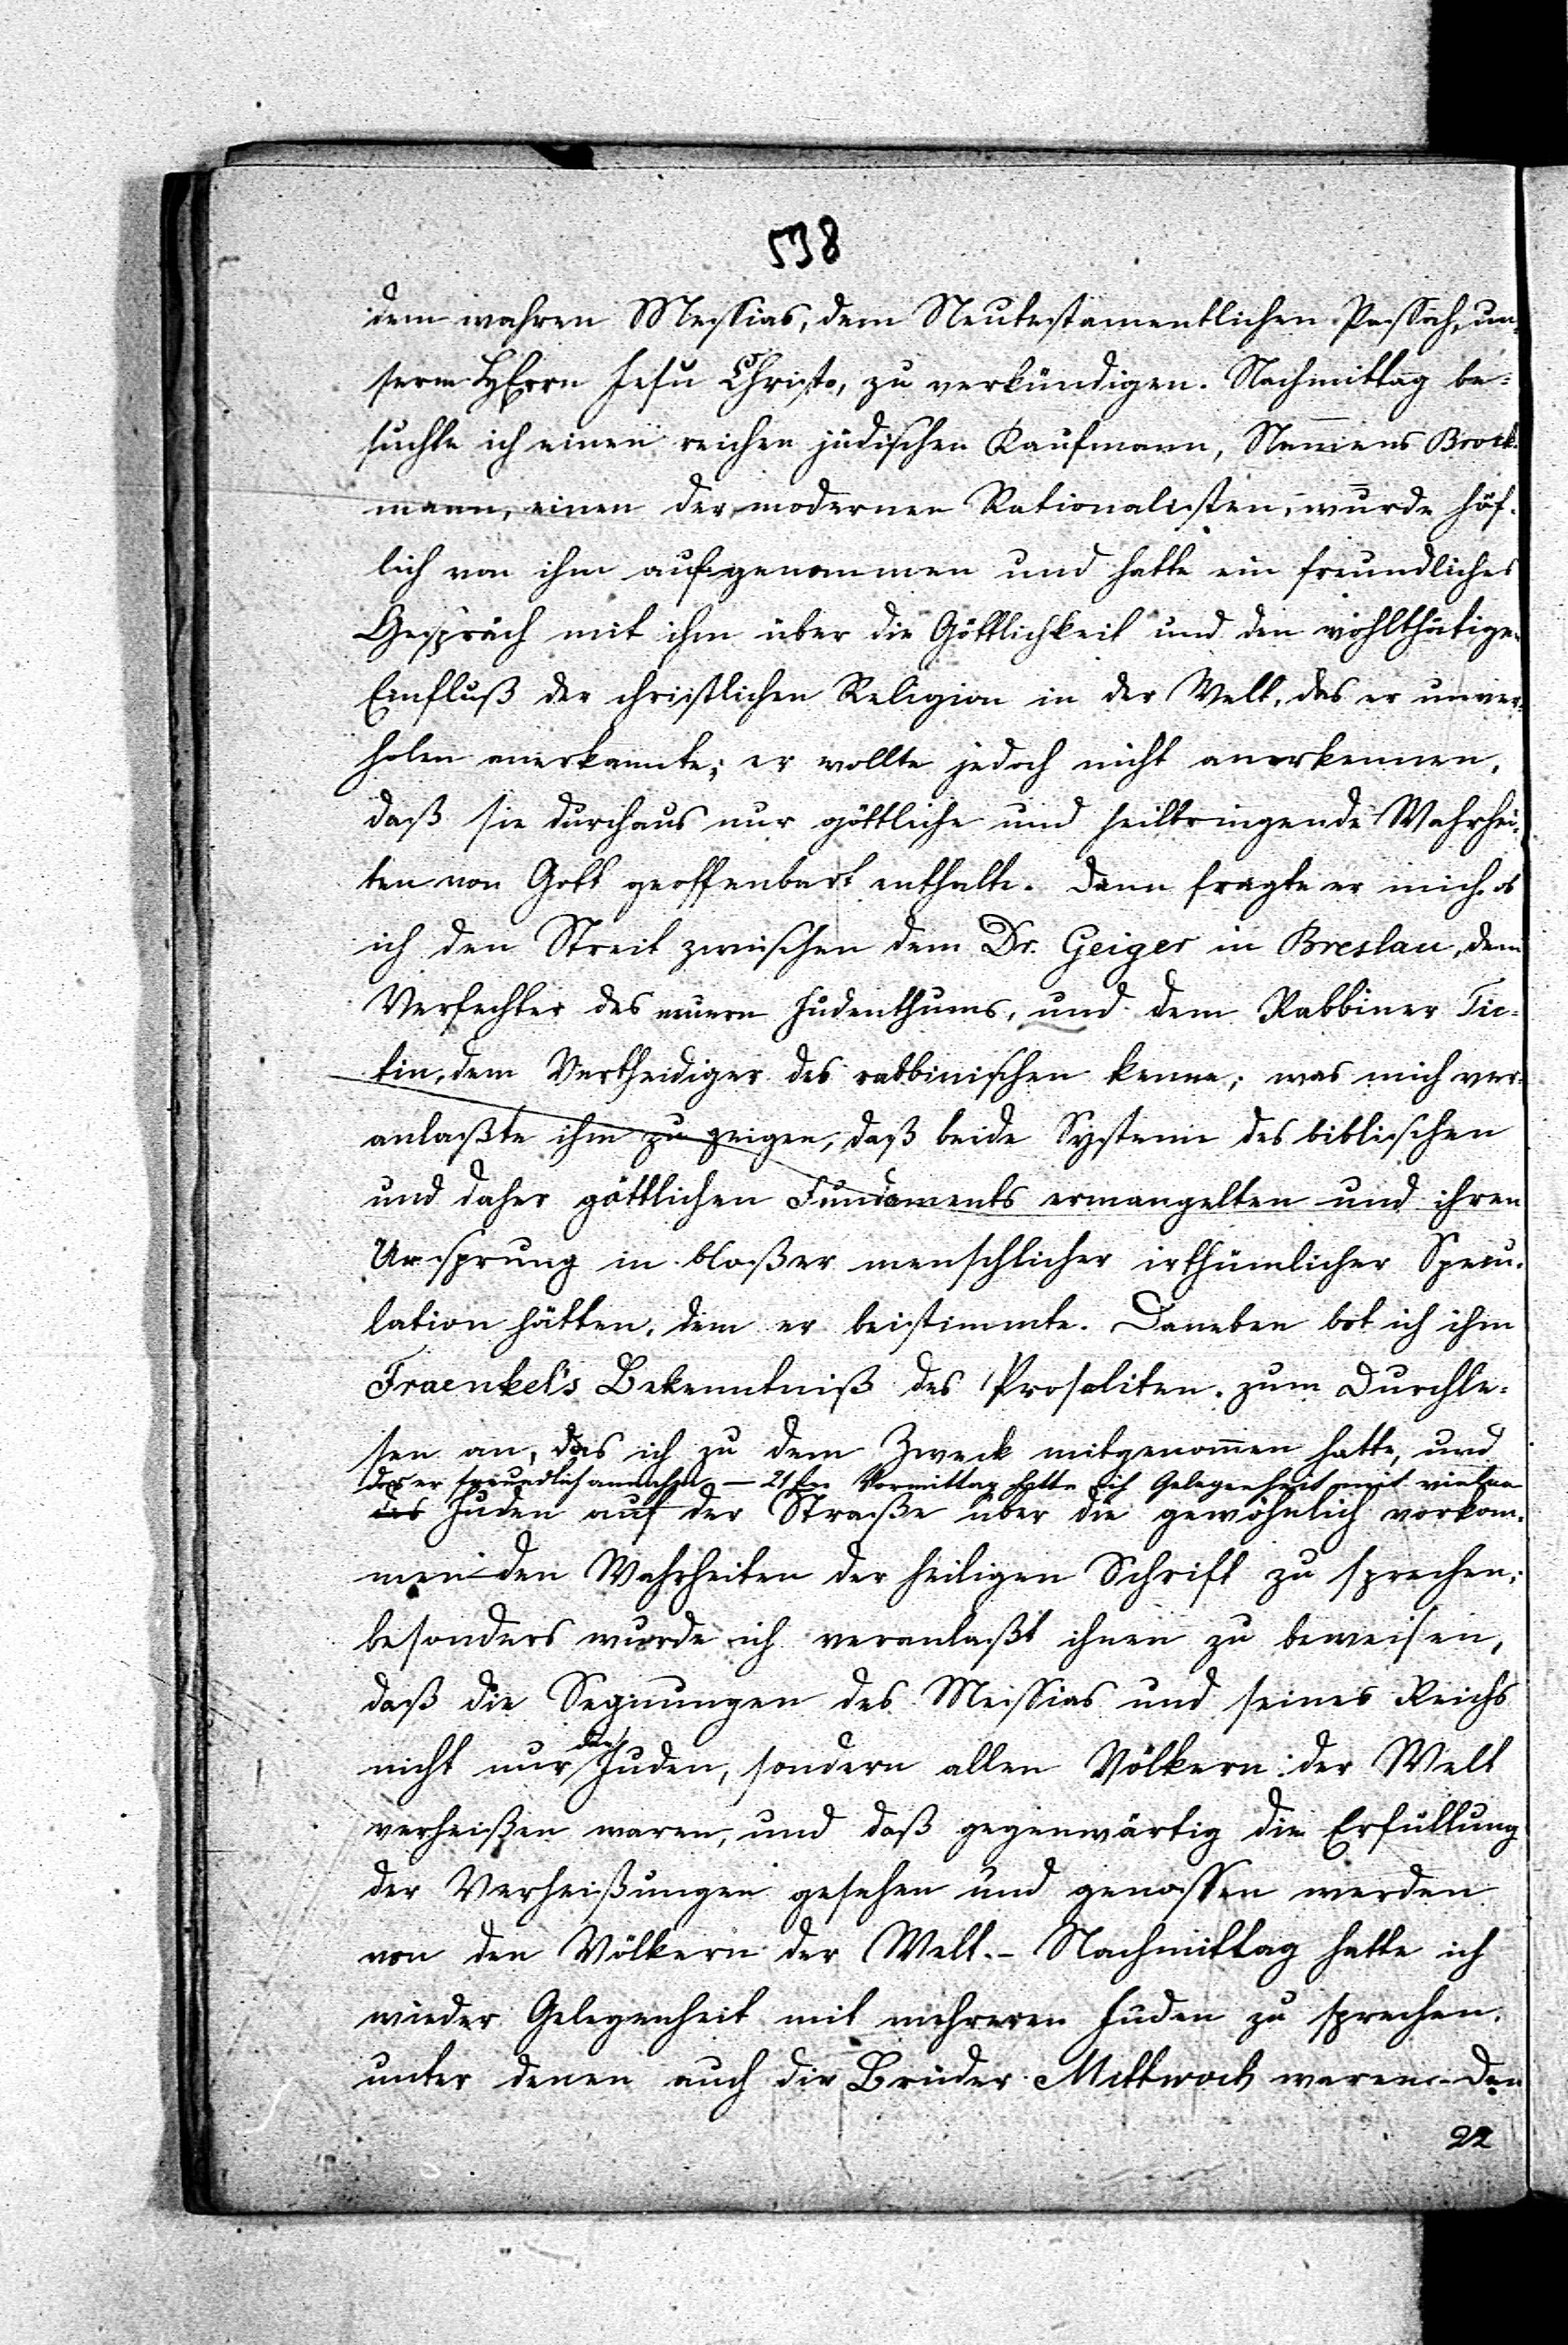 538
dem wahren Messias, dem Neutestamentlichen Passah, un-
serm HErrn Jesu Christo, zu verkündigen. Nachmittag be-
suchte ich einen reichen jüdischen Kaufmann, Namens Brock-
mann, einen der modernen Rationalisten, wurde höf-
lich von ihm aufgenommen und hatte ein freundliches
Gespräch mit ihm über die Göttlichkeit und den wohlthätigen
Einfluß der christlichen Religion in der Welt, das er unver-
holen anerkannte; er wollte jedoch nicht anerkennen,
daß sie durchaus nur göttliche und heilbringende Wahrhei-
ten von Gott geoffenbart enthalte. Dann fragte er mich ob
ich den Streit zwischen dem Dr. Geiger in Breslau, dem
Verfechter des neuern Judenthums, und dem Rabbiner Tic-
tin, dem Vertheidiger des rabbinischen kenne; was mich ver-
anlaßte ihm zu zeigen, daß beide Systeme des biblischen
und daher göttlichen Fundaments ermangelten und ihren
Ursprung in bloßer menschlicher irthümlicher Specu-
lation hätten, dem er beistimmte. Daneben bot ich ihm
Fraenkel's Bekenntniß des Proseliten zum Durchle-
sen an, das ich zu dem Zweck mitgenommen hatte, und
das er freundlich annahm. — 21ten Vormittag hatte ich Gelegenheit mit vielen
Juden auf der Straße über die gewöhnlich vorkom-
menden Wahrheiten der heiligen Schrift zu sprechen;
besonders wurde ich veranlaßt ihnen zu beweisen,
daß die Segnungen des Messias und seines Reichs
nicht nur den Juden, sondern allen Völkern der Welt
verheißen waren, und daß gegenwärtig die Erfüllung
der Verheißungen gesehen und genossen werden
von den Völkern der Welt. - Nachmittag hatte ich
wieder Gelegenheit mit mehreren Juden zu sprechen,
unter denen auch die Brüder Mittwoch waren. Den
22